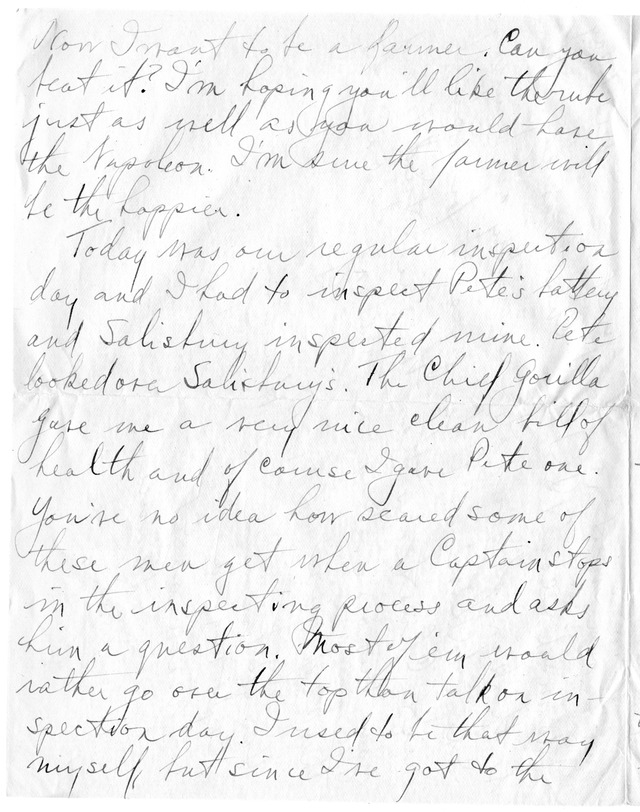 Now I want to be a farmer. Can you
beat it? I'm hoping you'll like the rube
just as well as you would have
the Napoleon. I'm sure the farmer will
be the happier.
Today was our regular inspection
day and I had to inspect Pete's battery
and Salisbury inspected mine. Pete
looked over Salisbury's. The Chief Gorilla
gave me a very nice clean bill of
health and of course I gave Pete one.
You've no idea how scared some of
these men get when a Captain stops
in the inspecting process and asks
him a question. Most of 'em would
rather go over the top than talk on in-
spection day. I used to be that way
myself, but since I've got to the